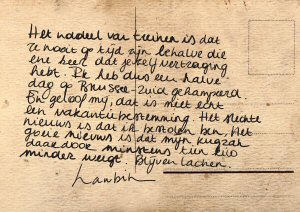 Het nadeel van treinen is dat
ze nooit op tijd zijn behalve die
ene keer dat je zelf vertraging
hebt. Ik heb dus een halve
dag op Brussel Zuid gekampeerd
En geloof mij, dat is niet echt
een vakantiebestemming. Het slechte
nieuws is dat ik bestolen ben. Het
goeie nieuws is dat mijn rugzak
daardoor minstens tien kilo
minder weegt. Blijven lachen.